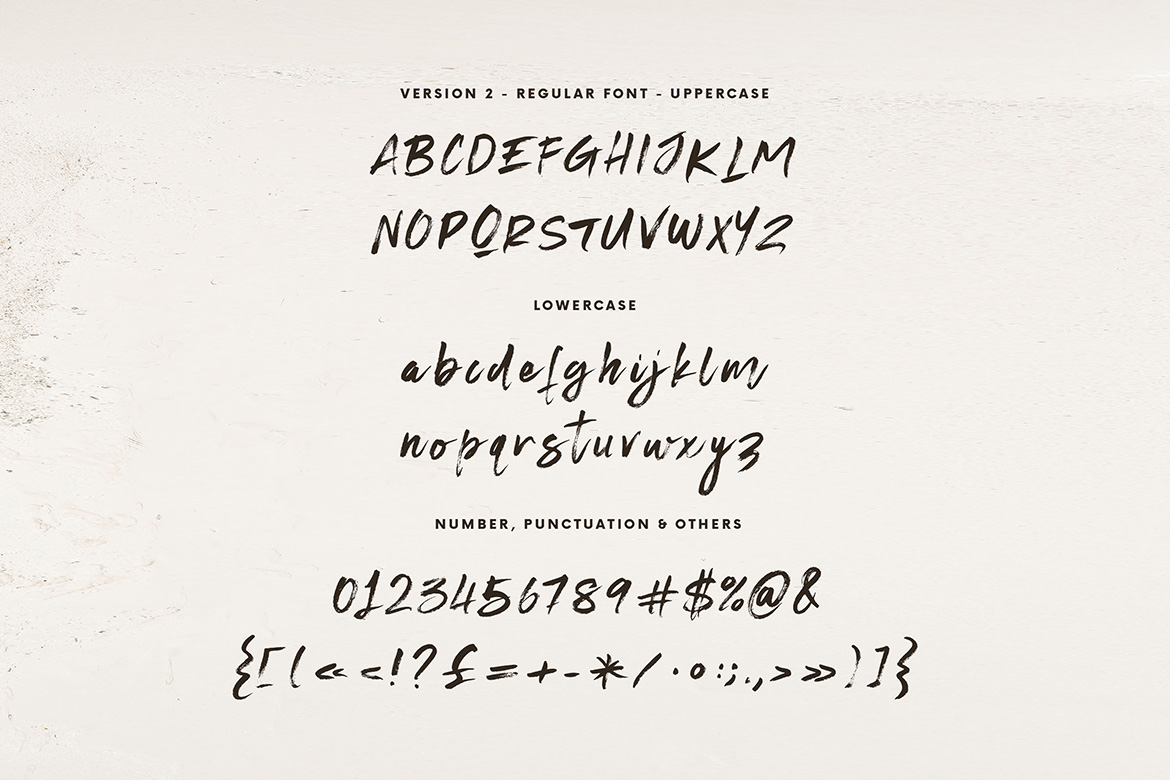 VERSION 2 - REGULAR FONT - UPPERCASE
ABCDEFGHIJKLM
NOPQRSTUVWXYZ
LOWERCASE
abcdefghijklm
nopqrstuvwxyz
NUMBER, PUNCTUATION & OTHERS
0123456789#$%@&
{[(«<!?£=+-*/·°:;.,>»)]}